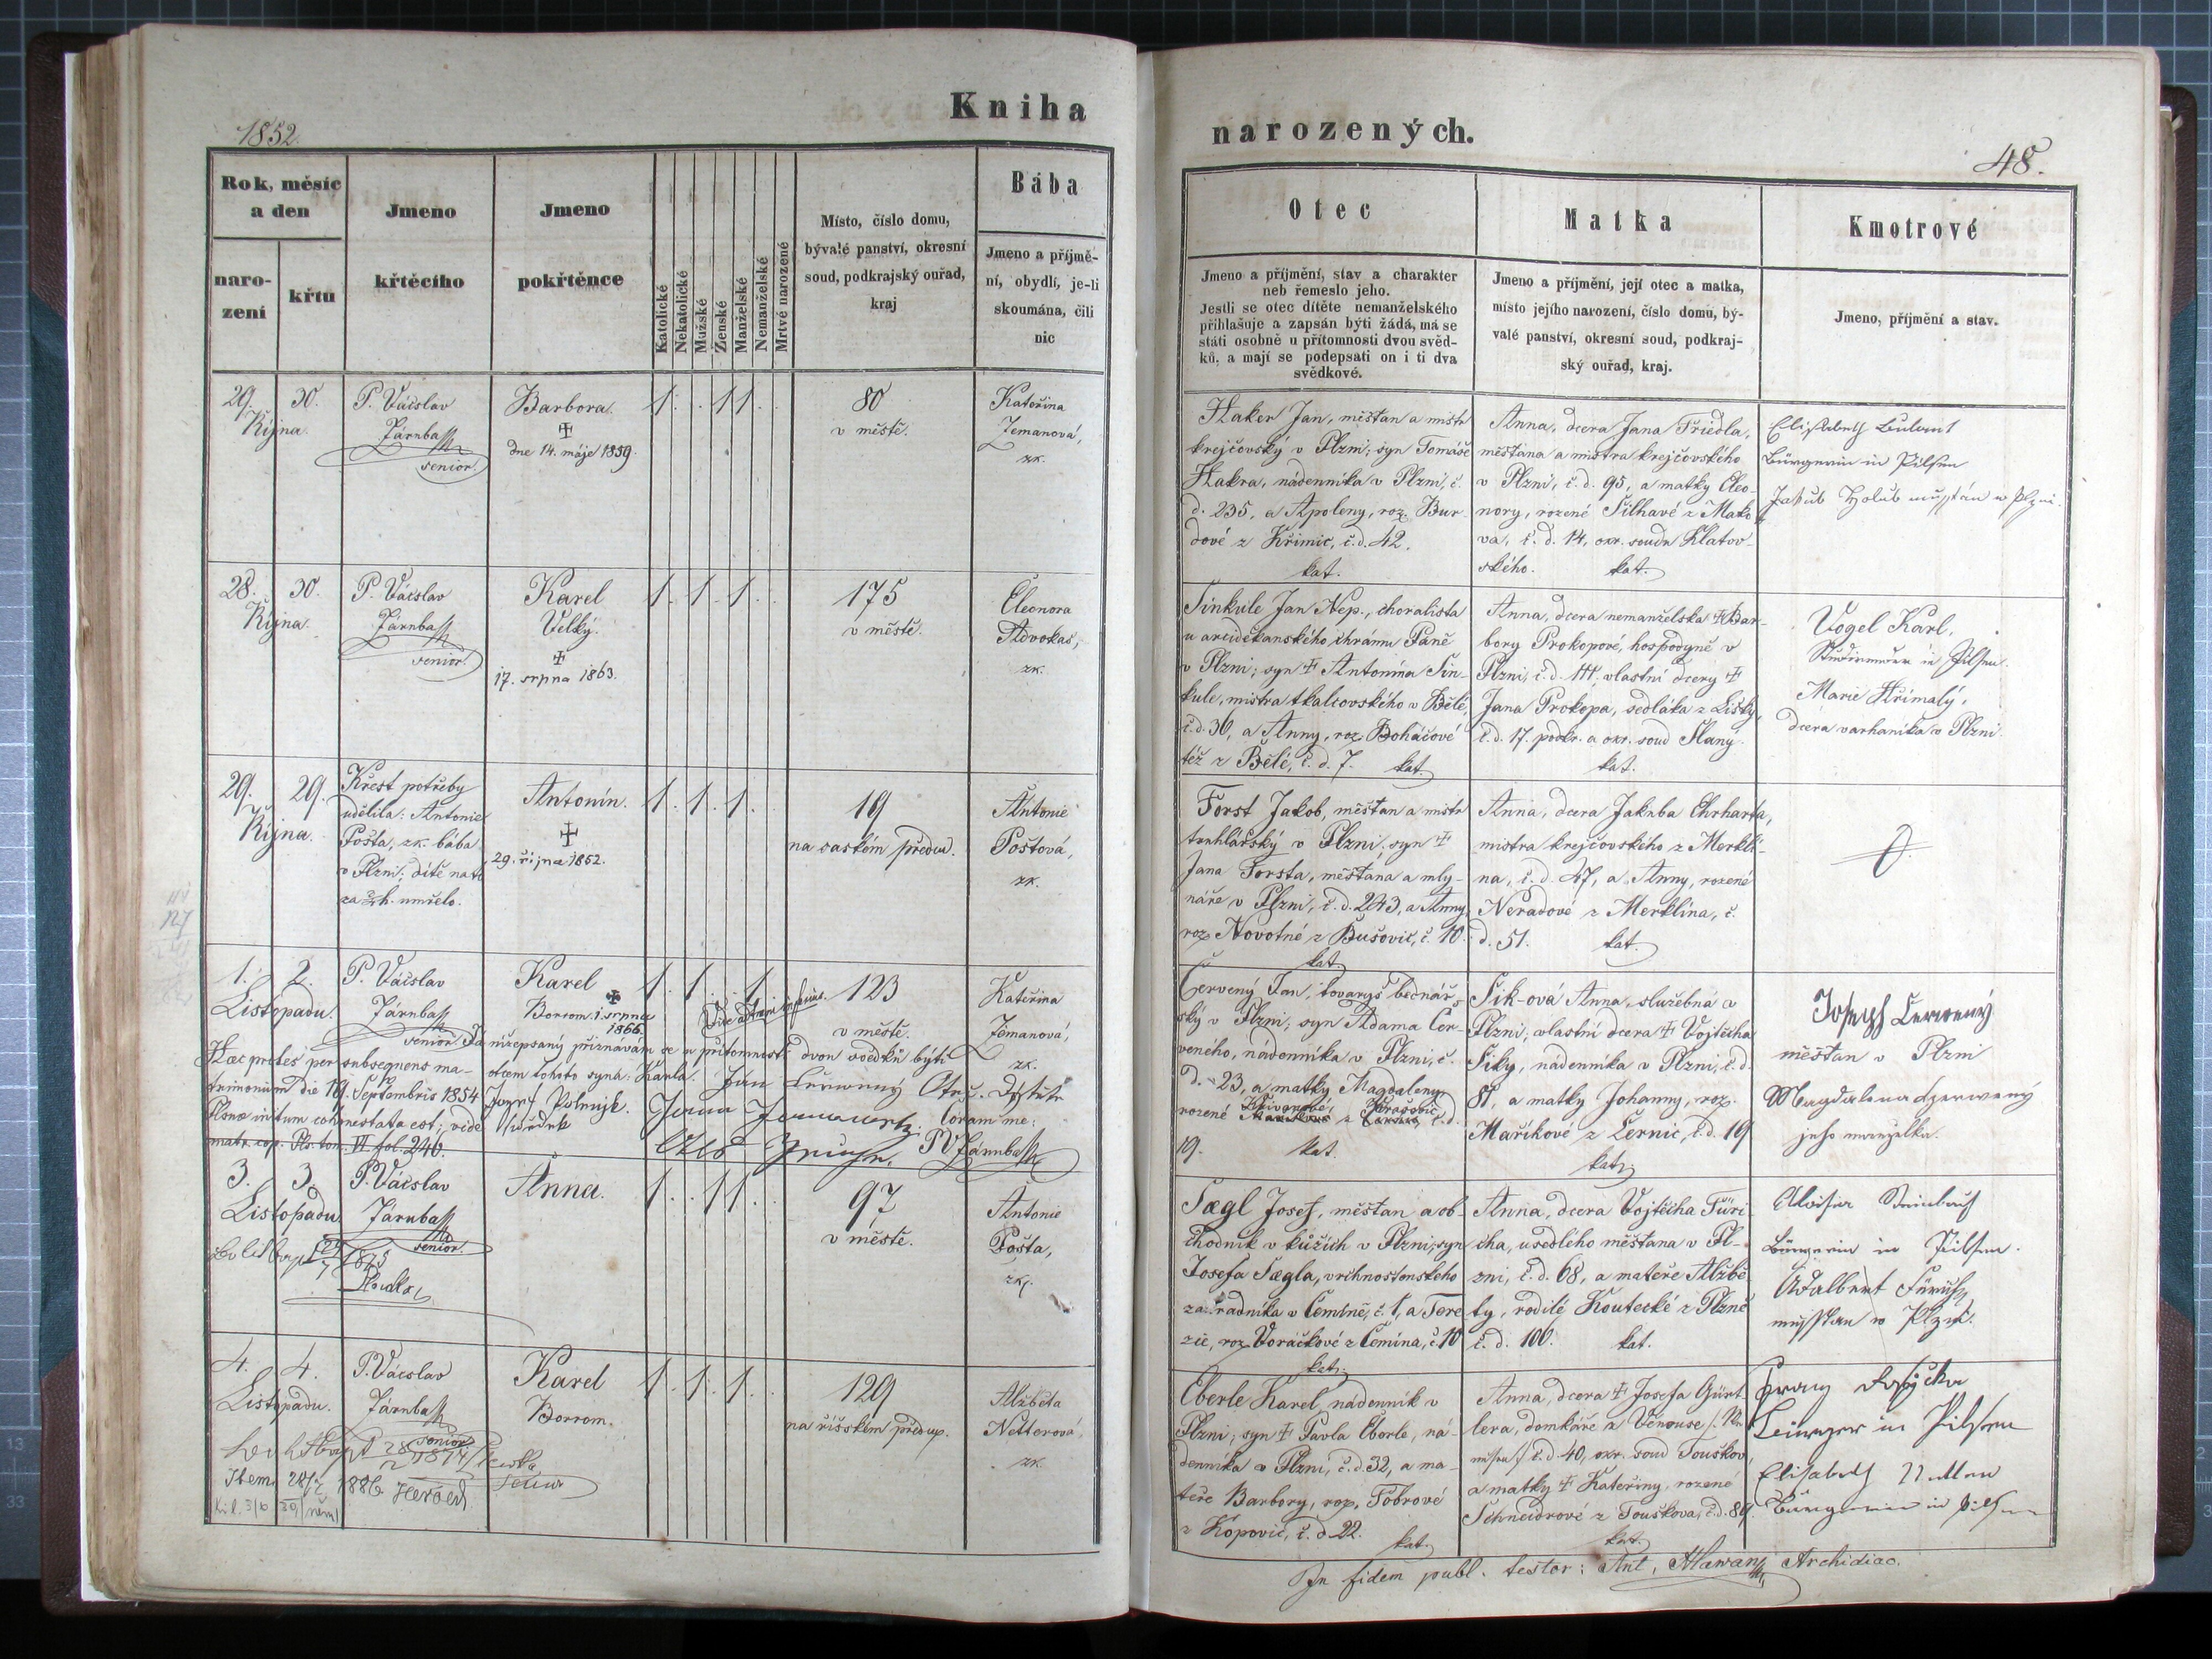 1852.
Kniha
Rok, měsíc
a den
naro-
zení
křtu
Jmeno
křtěcího
Jmeno
pokřtěnce
Katolické
Nekatolické
Mužské
Ženské
Manželské
Nemanželské
Mrtvé narozené
Místo, číslo domu,
bývalé panství, okresní
soud, podkrajský ouřad,
kraj
Bába
Jmeno a příjmě-
ní, obydlí, je-li
skoumána, čili
nic
29. 30.
Října.
P. Václav
Járnbach
senior.
Barbora.
✠
dne 14. máje 1859.
1. . 1 1 . .
80
v městě.
Kateřina
Zemanová,
zk.
28. 30.
Října.
P. Václav
Járnbach
senior.
Karel
Velký.
✠
17. srpna 1863.
1. 1. 1.
175
v městě.
Eleonora
Advokat,
zk.
29. 29.
Října.
Křest potřeby
udělila: Antonie
Pošta, zk. bába
v Plzni; dítě na to
za h. umřelo.
Antonín.
✠
29. října 1852.
1. 1. 1.
19
na saském předm.
Antonie
Poštová,
zk.
1. 2.
Listopadu.
P. Václav
Járnbach
senior.
Karel
Borrom. ✠ 1. srpna
1866.
1. 1. . 1
123
v městě.
Kateřina
Zemanová,
zk.
Já nížepsaný přiznávám se u přítomnosti dvou svědků býti
otcem tohoto syna: Karla. Jan Čerwenný Otec. Dítěte
Haec proles per subsequens ma-
trimonium die 19. Septembris 1854
Plsnae initum cohonestata est; vide
matr. cop. Pls. tom. VI. fol. 246.
Coram me:
P V Járnbach
3. 3.
Listopadu.
P. Václav
Járnbach
senior.
Anna.
1. . 1 1 .
97
v městě.
Antonie
Pošta,
zk.
4. 4.
Listopadu.
P. Václav
Járnbach
senior
Karel
Borrom.
1. 1. 1.
129
na říšském předm.
Alžběta
Netterová,
zk.
Item 1886 Herold
narozených.
48.
Otec
Jmeno a příjmění, stav a charakter
neb řemeslo jeho.
Jestli se otec dítěte nemanželského
přihlašuje a zapsán býti žádá, má se
státi osobně u přítomnosti dvou svěd-
ků, a mají se podepsati on i ti dva
svědkové.
Matka
Jmeno a příjmění, její otec a matka,
místo jejího narození, číslo domu, bý-
valé panství, okresní soud, podkraj-
ský ouřad, kraj.
Kmotrové
Jmeno, příjmění a stav.
Haker Jan, měšťan a mistr
krejčovský v Plzni; syn Tomáše
Hakra, nádenníka v Plzni, č.
d. 235, a Apoleny, roz. Bur-
dové z Křimic, č. d. 42.
kat.
Anna, dcera Jana Friedla,
měšťana a mistra krejčovského
v Plzni, č. d. 95, a matky Eleo-
nory, rozené Šilhavé z Mako-
va, č. d. 14, okr. soudu Klatov-
ského. kat.
Elisabeth
Bürgerin in Pilsen
Jakub Holub
Sinkule Jan Nep., choralista
u arciděkanského chrámu Páně
v Plzni; syn ✠ Antonína Sin-
kule, mistra tkalcovského v Bělé,
č. d. 36, a Anny, roz. Boháčové
též z Bělé, č. d. 7. kat.
Anna, dcera nemanželská ✠ Bar-
bory Prokopové, hospodyně v
Plzni, č. d. 111; vlastní dcery ✠
Jana Prokopa, sedláka z Lisky,
č. d. 17. podkr. a okr. soud Slaný.
kat.
Vogel Karl,
in Pilsen.
Marie Hřímalý,
dcera varhaníka v Plzni.
Forst Jakob, měšťan a mistr
truhlářský v Plzni, syn ✠
Jana Forsta, měšťana a mly-
náře v Plzni, č. d. 243, a Anny,
roz. Novotné z Bušovic, č. 10.
kat.
Anna, dcera Jakuba Ehrharta,
mistra krejčovského z Merklí-
na, č. d. 47, a Anny, rozené
Neradové z Merklína, č.
d. 51. kat.
Červený Jan, tovaryš bednář-
ský v Plzni, syn Adama Čer-
veného, nádenníka v Plzni, č.
d. 23, a matky Magdaleny
rozené č. d.
19. kat.
Sik-ová Anna, služebná v
Plzni; vlastní dcera ✠ Vojtěcha
Siky, nádenníka v Plzni, č. d.
81, a matky Johanny, roz.
Maříkové z Černic, č. d. 19
kat.
Joseph Červený
měšťan v Plzni
Magdalena Czerwený
jeho manželka.
Sægl Josef, měšťan a ob-
chodník v kůžích v Plzni, syn
Josefa Sægla, vrchnostenského
zahradníka v Čemíně, č. 1, a Tere-
zie, roz. Voráčkové z Čemína, č. 10
kat.
Anna, dcera Vojtěcha Türi-
cha, usedlého měšťana v Pl-
zni, č. d. 68, a mateře Alžbě-
ty, rodilé Koutecké z Plzně
č. d. 100. kat.
Aloisia Steinbach
Bürgerin in Pilsen.
Adalbert
Eberle Karel, nádenník v
Plzni; syn ✠ Pavla Eberle, ná-
denníka v Plzni, č. d. 32, a ma-
teře Barbory, roz. Tobrové
z Kopovic, č. d. 22. kat.
Anna, dcera ✠ Josefa Gürt-
lera, domkáře z Věnouse
č. d. 40, okr. soud Touškov,
a matky ✠ Kateřiny, rozené
Schneidrové z Touškova, č. d. 89.
kat.
Franz
in Pilsen
Elisabeth
Bürgerin in Pilsen
In fidem publ. testor: Ant. Hlawan Archidiac.